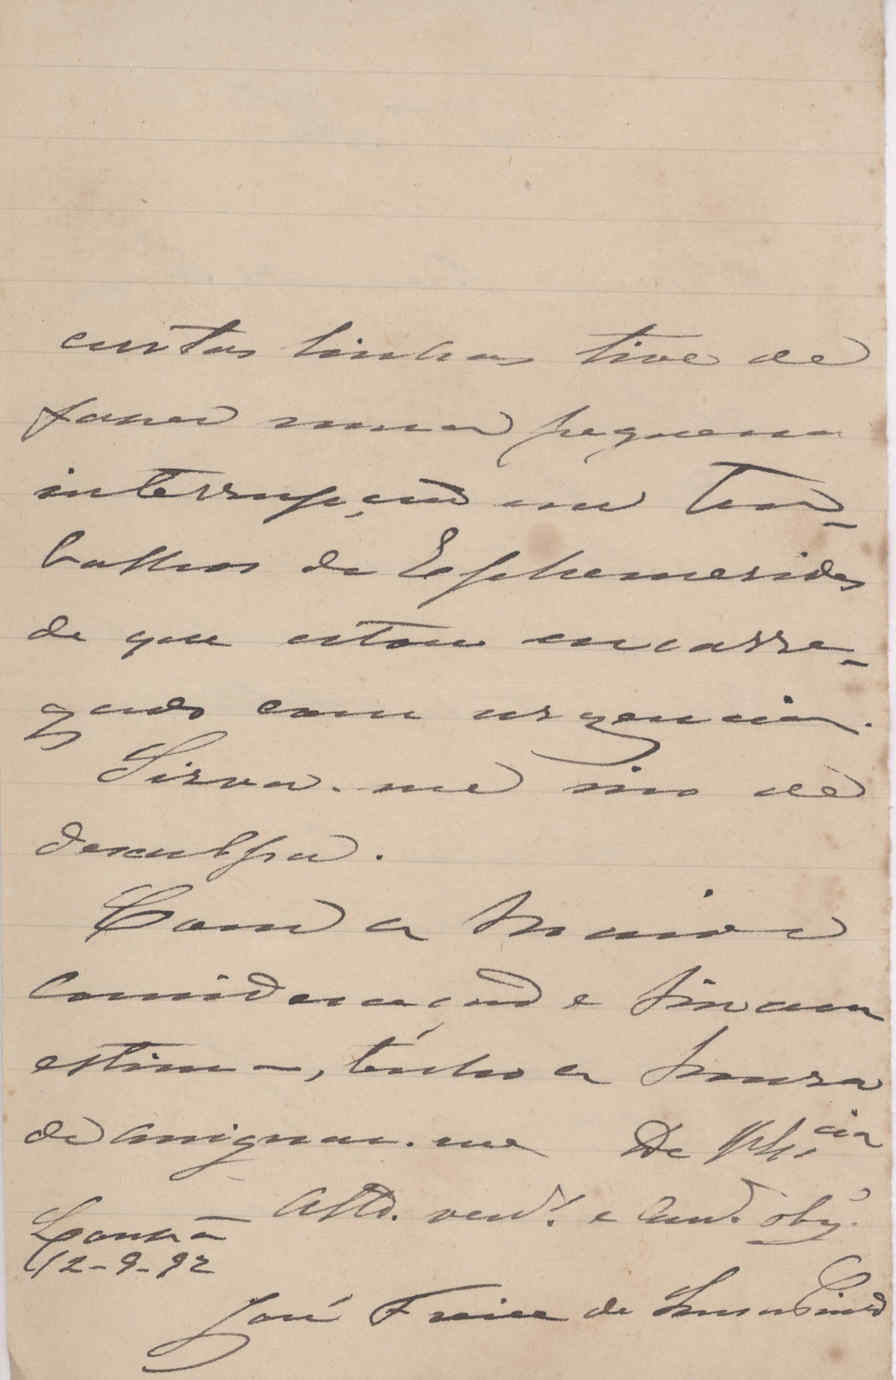 curtas linhas tive de
fazer uma pequena
interrupção em tra-
balhos de Ephemerides
de que estou encarre-
gado com urgencia.
Sirva-me isso de
desculpa.
Com a maior
consideração e sincera
estima, tenho a honra
de assignar-me De V. Ex.cia
Atto. ven.or e cri.do obg.
12-9-92
José Freire de Sousa Pinto